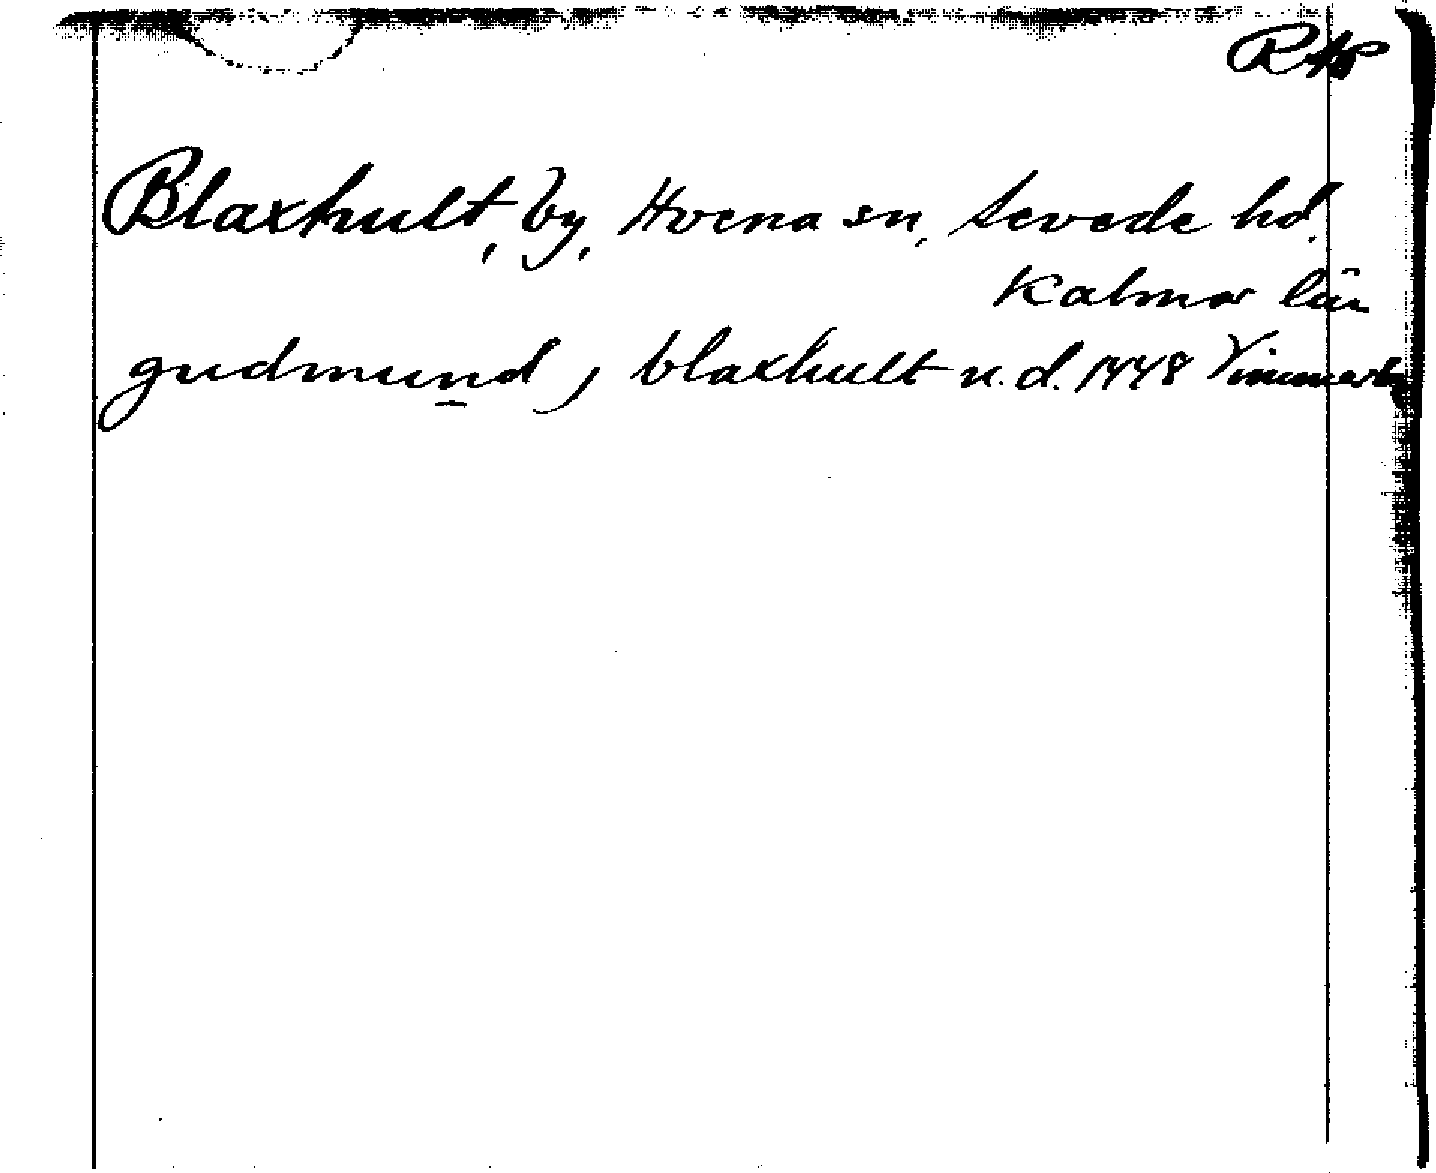 RAp
Blaxhult, by, Hvena sn, Sevede hd.
Kalmar län
gudmund j blaxhult u.d. 1448 Vimmerby